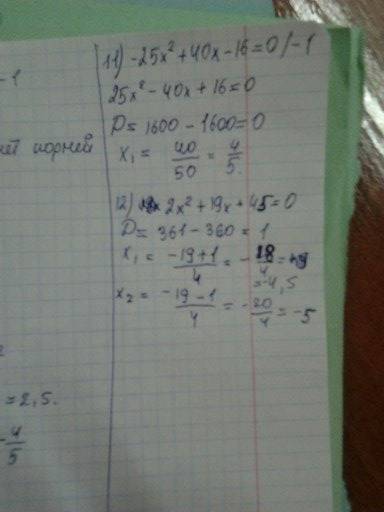 -1
ней корней
= 2,5.
-4/5
11) -25x² + 40x - 16 = 0 /-1
25x² - 40x + 16 = 0
D = 1600 - 1600 = 0
x₁ = 40/50 = 4/5.
12) 2x² + 19x + 45 = 0
D = 361 - 360 = 1
x₁ = -19+1/4 = -18/4 =
= -4,5
x₂ = -19-1/4 = -20/4 = -5